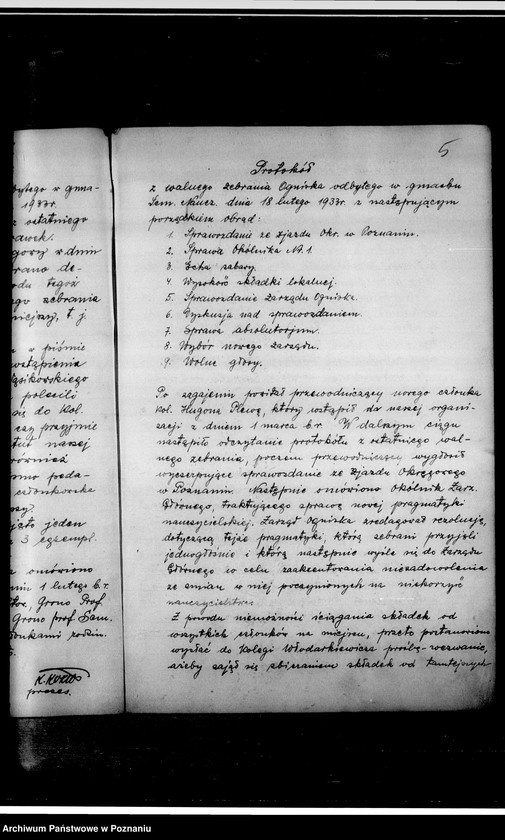 bytego w gma-
1933r.
z ostatniego
dawek.
gowy w dniu
brano de-
odu tegoż
ego zebrania
niejszy, t. j.
w piśmie
wstąpienia
ąsikowskiego
polecili
się do Kol.
czy przyjmie
naszej
również
ono poda-
członkowska
jeden
3 egzempl.
omówiono
min 1 lutego b.r.
Grono Prof.
Grono prof. Sem.
członkami rodzin.
K. Kozłos
prezes.
5
Protokół
z walnego zebrania Ogniska odbytego w gmachu
Sem. Naucz. dnia 18 lutego 1933r. z następującym
porządkiem obrad:
1. Sprawozdanie ze Zjazdu Okr. w Poznaniu.
2. Sprawa Okólnika N. 1.
3. Echa zabawy.
4. Wysokość składki lokalnej.
5. Sprawozdanie Zarządu Ogniska.
6. Dyskusja nad sprawozdaniem.
7. Sprawa absolutorjum.
8. Wybór nowego zarządu.
9. Wolne głosy.
Po zagajeniu powitał przewodniczący nowego członka
Kol. Hugona Plewę, który wstąpił do naszej organi-
zacji z dniem 1 marca b.r. W dalszym ciągu
nastąpiło odczytanie protokółu z ostatniego wal-
nego zebrania, poczem przewodniczący wygłosił
wyczerpujące sprawozdanie ze Zjazdu Okręgowego
w Poznaniu. Następnie omówiono Okólnik Zarz.
Głównego, traktującego sprawę nowej pragmatyki
nauczycielskiej. Zarząd Ogniska zredagował rezolucję,
dotyczącą tejże pragmatyki, którą zebrani przyjęli
jednogłośnie i którą następnie wyśle się do Zarządu
Głównego w celu zaakcentowania niezadowolenia
ze zmian w niej poczynionych na niekorzyść
nauczycielstwa.
Z powodu niemożności ściągania składek od
wszystkich członków na miejscu, przeto postanowiono
wysłać do kolegi Włodarkiewicza prośbę-wezwanie,
ażeby zajął się zbieraniem składek od tamtejszych
Archiwum Państwowe w Poznaniu